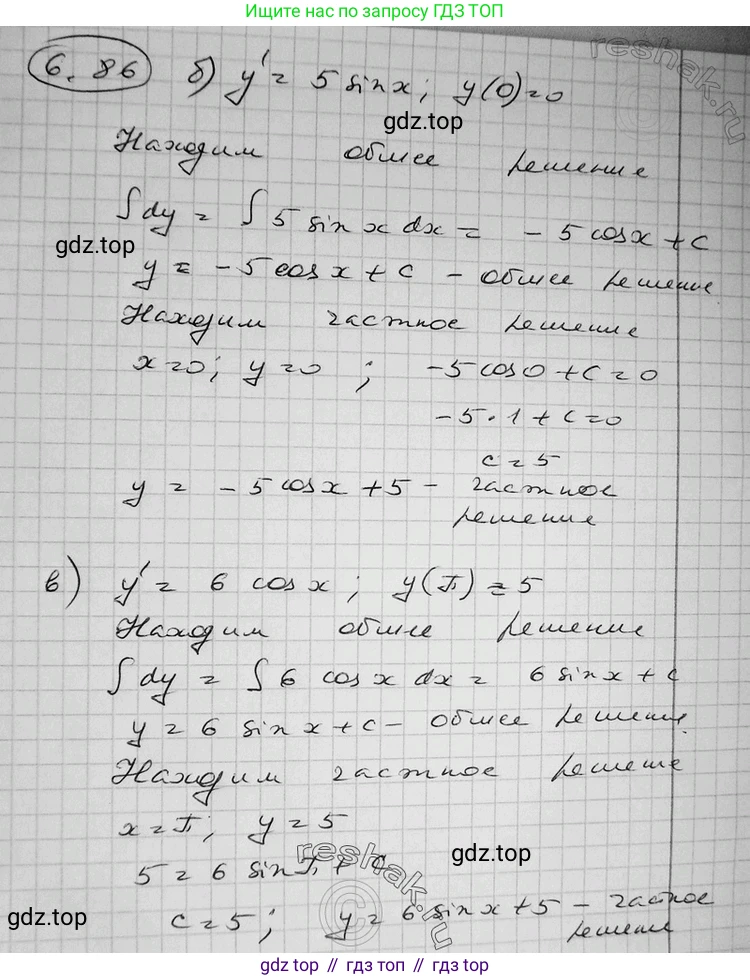 Ищите нас по запросу ГДЗ ТОП
6.86 б) y' = 5 sin x; y(0)=0
gdz.top
Находим общее решение
∫dy = ∫ 5 sin x dx = - 5 cos x + c
gdz.top
y = - 5 cos x + c - общее решение
Находим частное решение
x=0; y=0 ; -5 cos 0 + c = 0
-5·1 + c = 0
gdz.top
c = 5
y = - 5 cos x + 5 - частное
решение
в) y' = 6 cos x; y(π) = 5
Находим общее решение
∫ dy = ∫ 6 cos x dx = 6 sin x + c
y = 6 sin x + c - общее решение
Находим частное решение
x = π; y = 5
5 = 6 sin π + c
gdz.top
c = 5; y = 6 sin x + 5 - частное
решение
gdz.top
reshak.ru
reshak.ru
gdz.top // гдз.топ // gdz.top